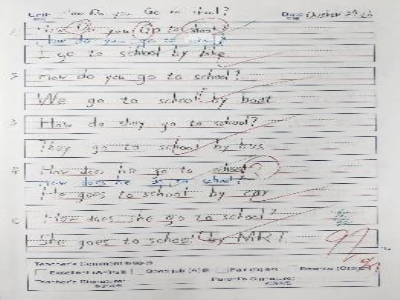 How Do you Go to school?
1. How do you go to school?
How do you go to school?
I go to school by bike
2. How do you go to school?
We go to school by boat
3. How do they go to school?
They go to school by bus
4. How does he go to school?
How does he go to school?
He goes to school by car
How does she go to school?
She goes to school by MRT
Teacher's Comment
Excellent
Good Job
Teacher's Signature
Parent's Signature